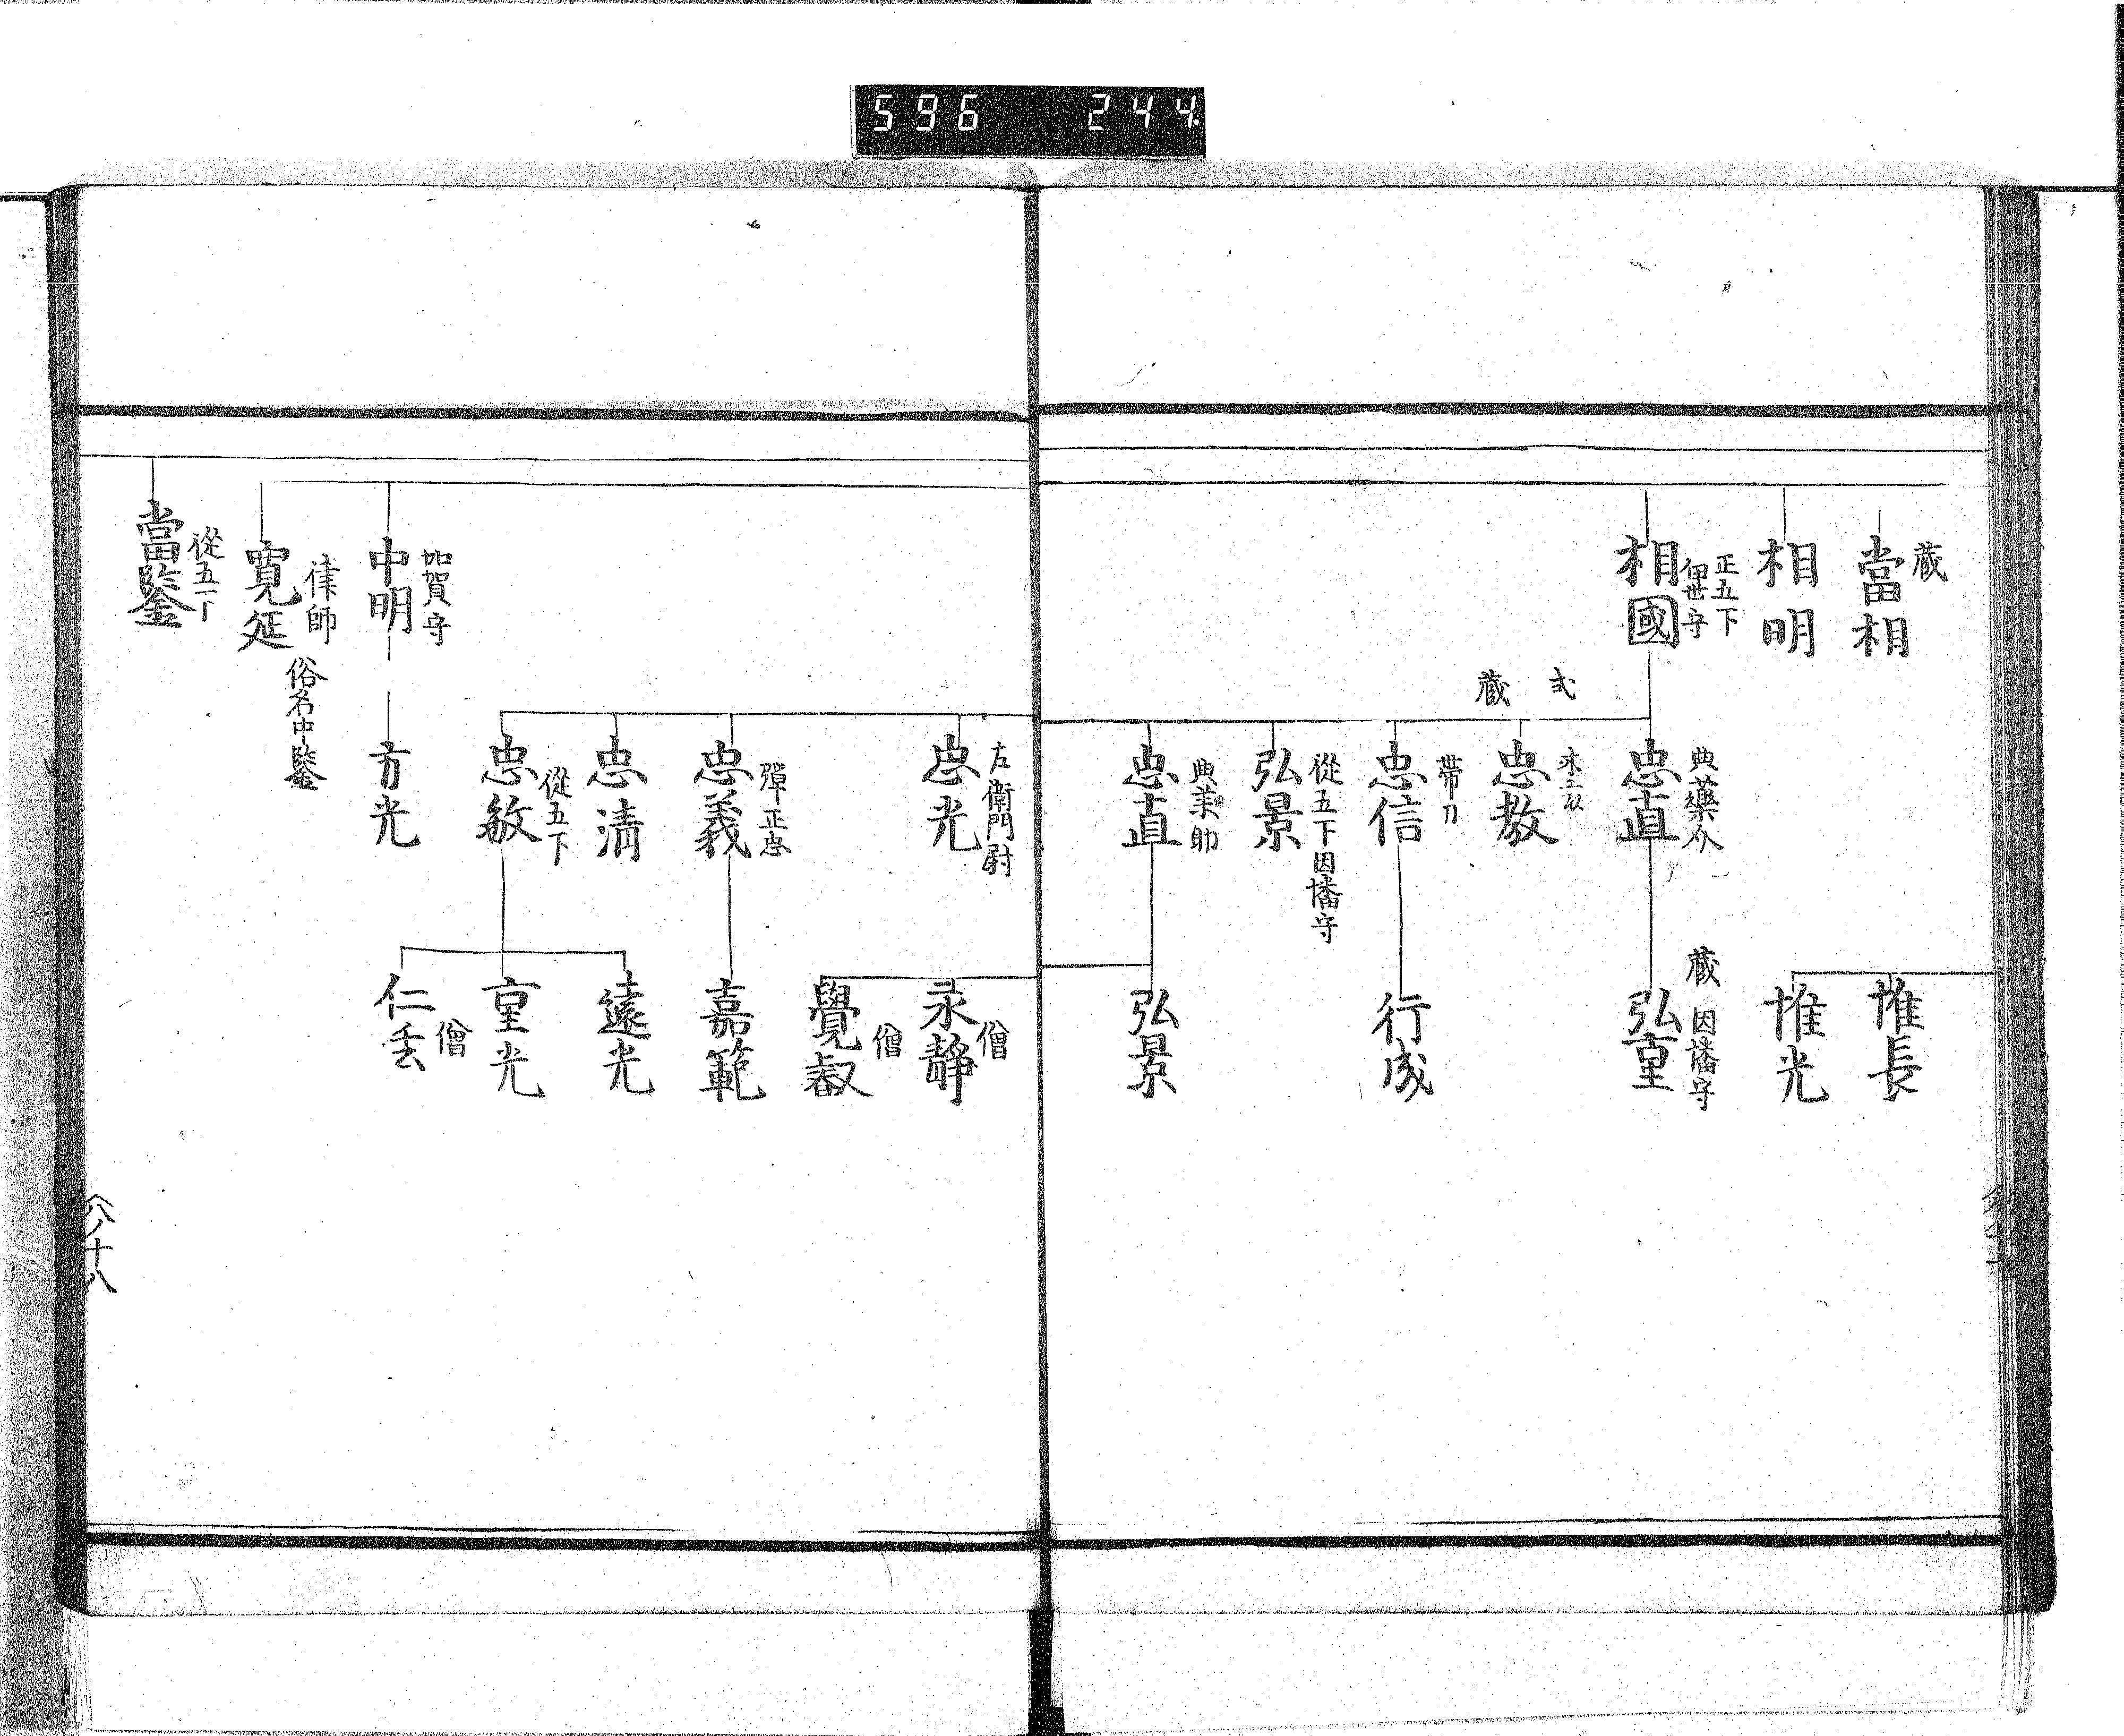 596 244
蔵
當相
相明
正五下
伊世守
相國
式
蔵
典藥介
忠直
忠教
帶刀
忠信
從五下因幡守
弘景
忠直
惟長
惟光
蔵
因幡守
弘重
行成
弘景
左衛門尉
忠光
彈正忠
忠義
忠清
從五下
忠敏
僧
永静
僧
覺叡
嘉範
遠光
重光
僧
加賀守
中明
方光
律師
俗名中鑒
寛延
從五下
當鑒
八ノ十八